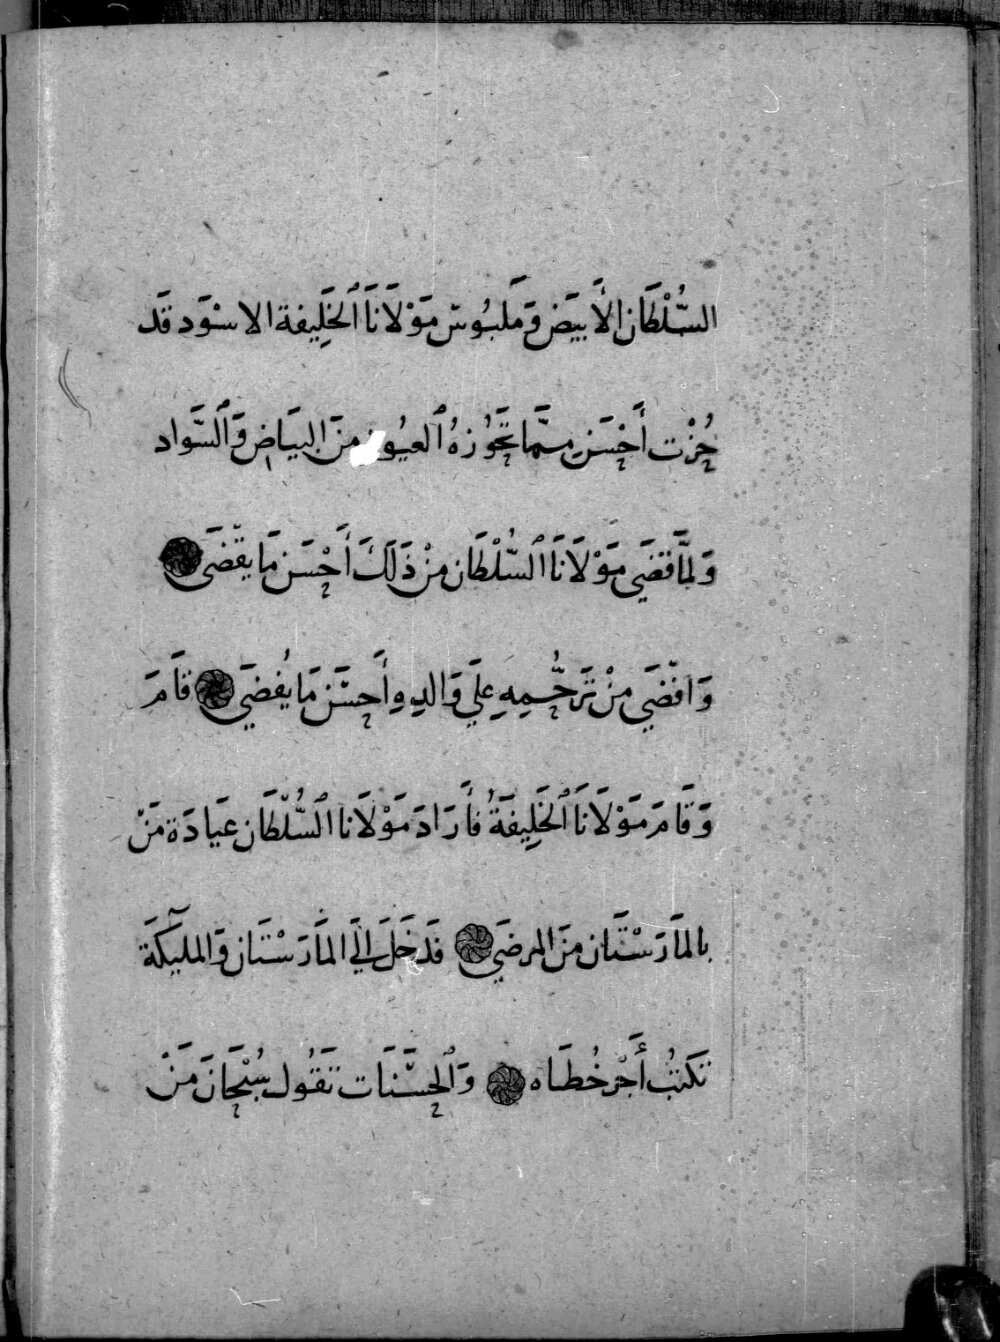 السُّلْطَان الأَبيَض وَمَلبُوس مَوْلَانَا ٱلخَلِيفة الاسْوَد قَد
حُزْت أَحْسَن مِمَّا تَحَوُزهُ ٱلعيُون مِنَ البيَاض وَٱلسَّواد
وَلمَّا قضَي مَوْلَانَا ٱلسُّلْطَان مِنْ ذَلَكَ أَحْسَن مَا يقْضَي
وَافْضَي مِنْ تَرَحُّمِهِ عَلي وَالدِهِ أَحسَن مَا يُفضَي قَامَ
وَقَامَ مَوْلَانَا ٱلخَلِيفَةُ فأَرَادَ مَوْلَانا ٱلسُّلْطَان عيَادَة مَنْ
بالمَارَسْتَان مِنَ المرضَي فدَخَلَ إلَي المَارَسْتَان وَالمليٓكَة
تَكتُب أَجْرَ خُطَاه وَٱلحسَنَات تَقُول سُبْحَانَ مَنْ